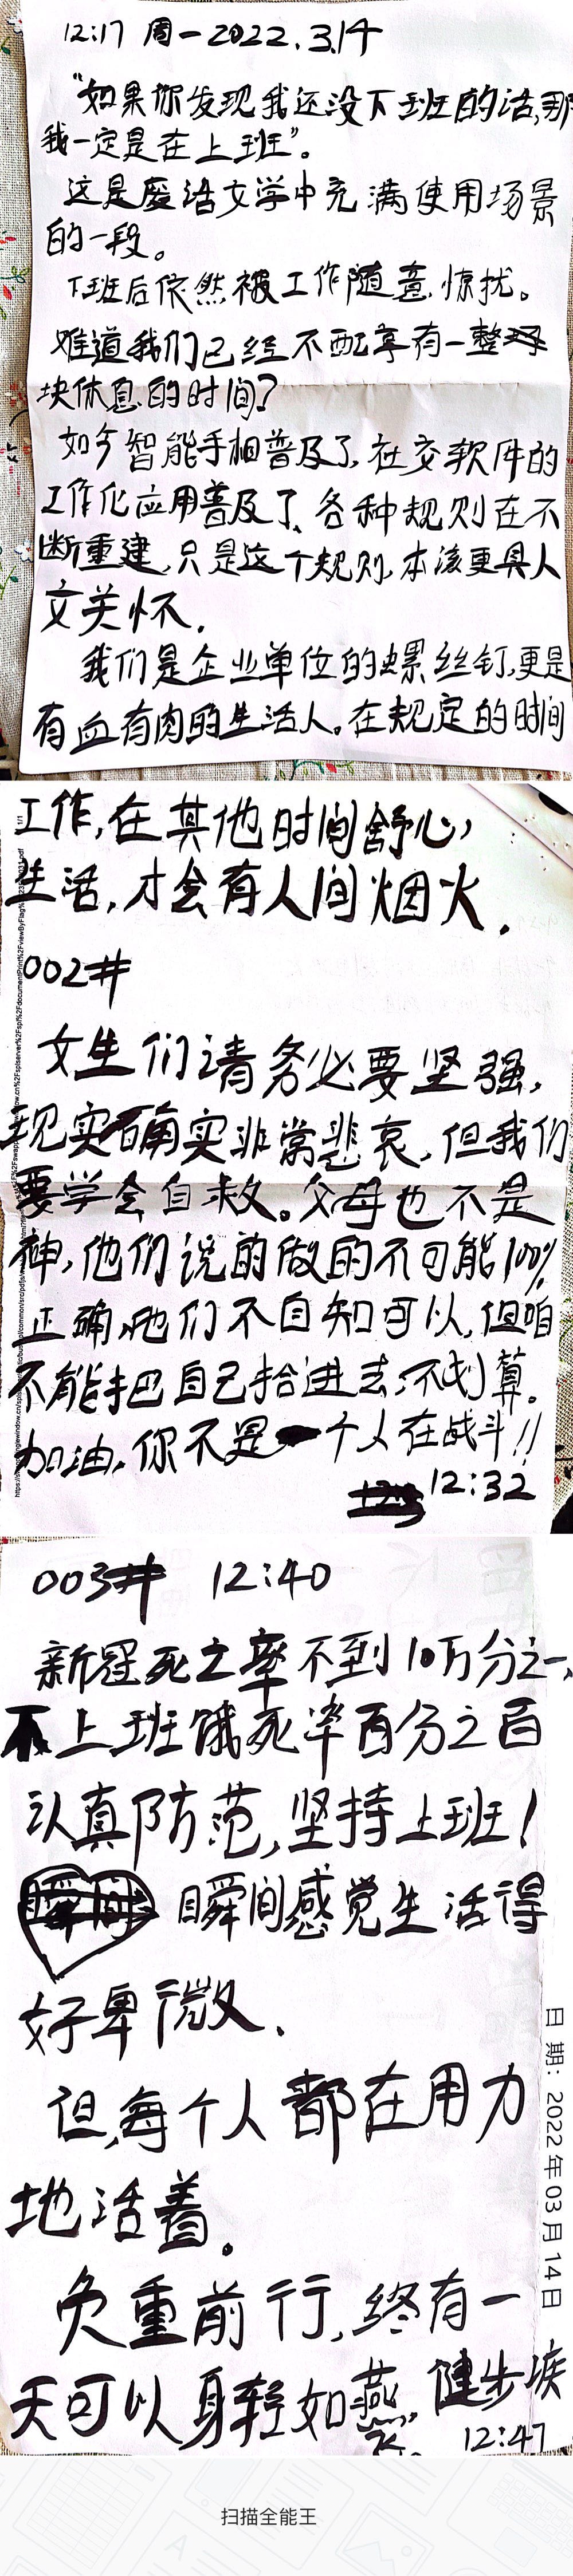 12:17 周一 2022.3.14
"如果你发现我还没下班的话,那
我一定是在上班"。
这是废话文学中充满使用场景
的一段。
下班后依然被工作随意惊扰。
难道我们已经不配享有一整
块休息的时间?
如今智能手相普及了,社交软件的
工作化应用普及了,各种规则在不
断重建,只是这个规则,本该更具人
文关怀.
我们是企业单位的螺丝钉,更是
有血有肉的生活人。在规定的时间
工作,在其他时间舒心,
生活,才会有人间烟火.
002#
女生们请务必要坚强,
现实确实非常悲哀,但我们
要学会自救。父母也不是
神,他们说的做的不可能100%
正确,他们不自知可以,但咱
不能把自己拾进去,不划算。
加油,你不是一个人在战斗!!
12:32
003# 12:40
新冠死亡率不到10万分之一,
不上班饿死率百分之百
认真防范,坚持上班!
瞬间感觉生活得
好卑微.
但,每个人都在用力
地活着。
负重前行,终有一
天可以身轻如燕,健步
飞。
12:47
日期: 2022年03月14日
扫描全能王